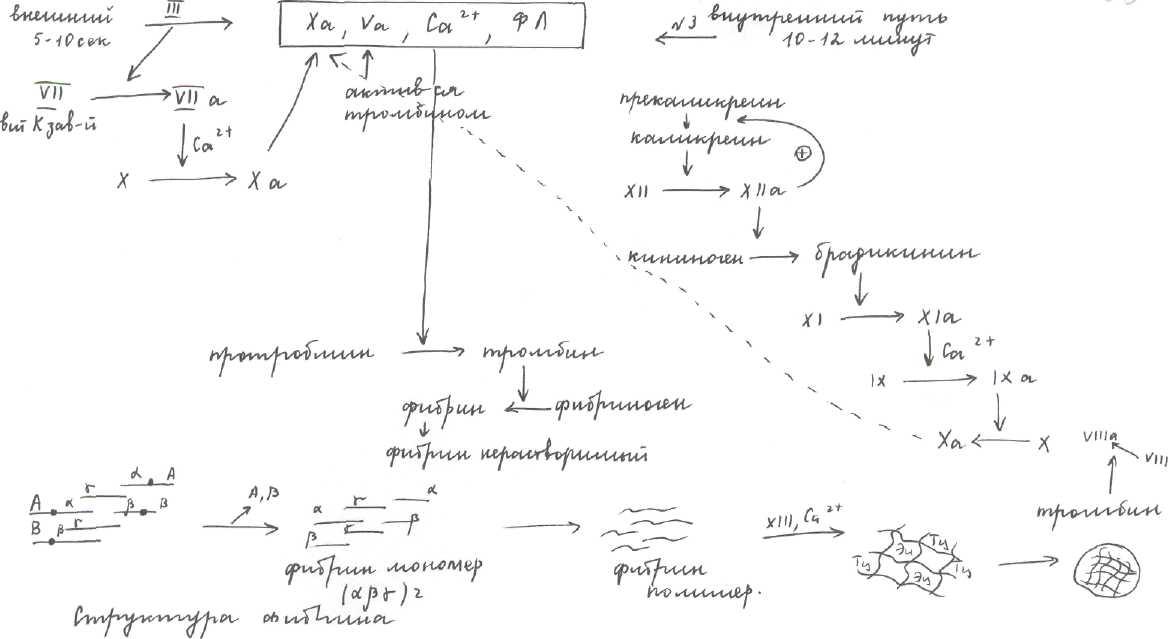 внешний
5-10 сек
III
Xa, Va, Ca²⁺, ФЛ
№3 внутренний путь
10-12 минут
VII
VII a
вит К зав-й
Ca²⁺
X
Xa
актив-ся
тромбином
прекаликреин
каликреин
+
XII
XIIa
кининоген
брадикинин
XI
XIa
Ca²⁺
IX
IXa
Xa
X
VIIIa
VIII
тромбин
протробмин
тромбин
фибрин
фибриноген
фибрин нерастворимый
α A
A α γ β β
B β γ
A, β
α γ α
β γ β
фибрин мономер
(αβγ)2
фибрин
полимер.
XIII, Ca²⁺
Тц Эц Тц
Тц Эц
Структура фибрина